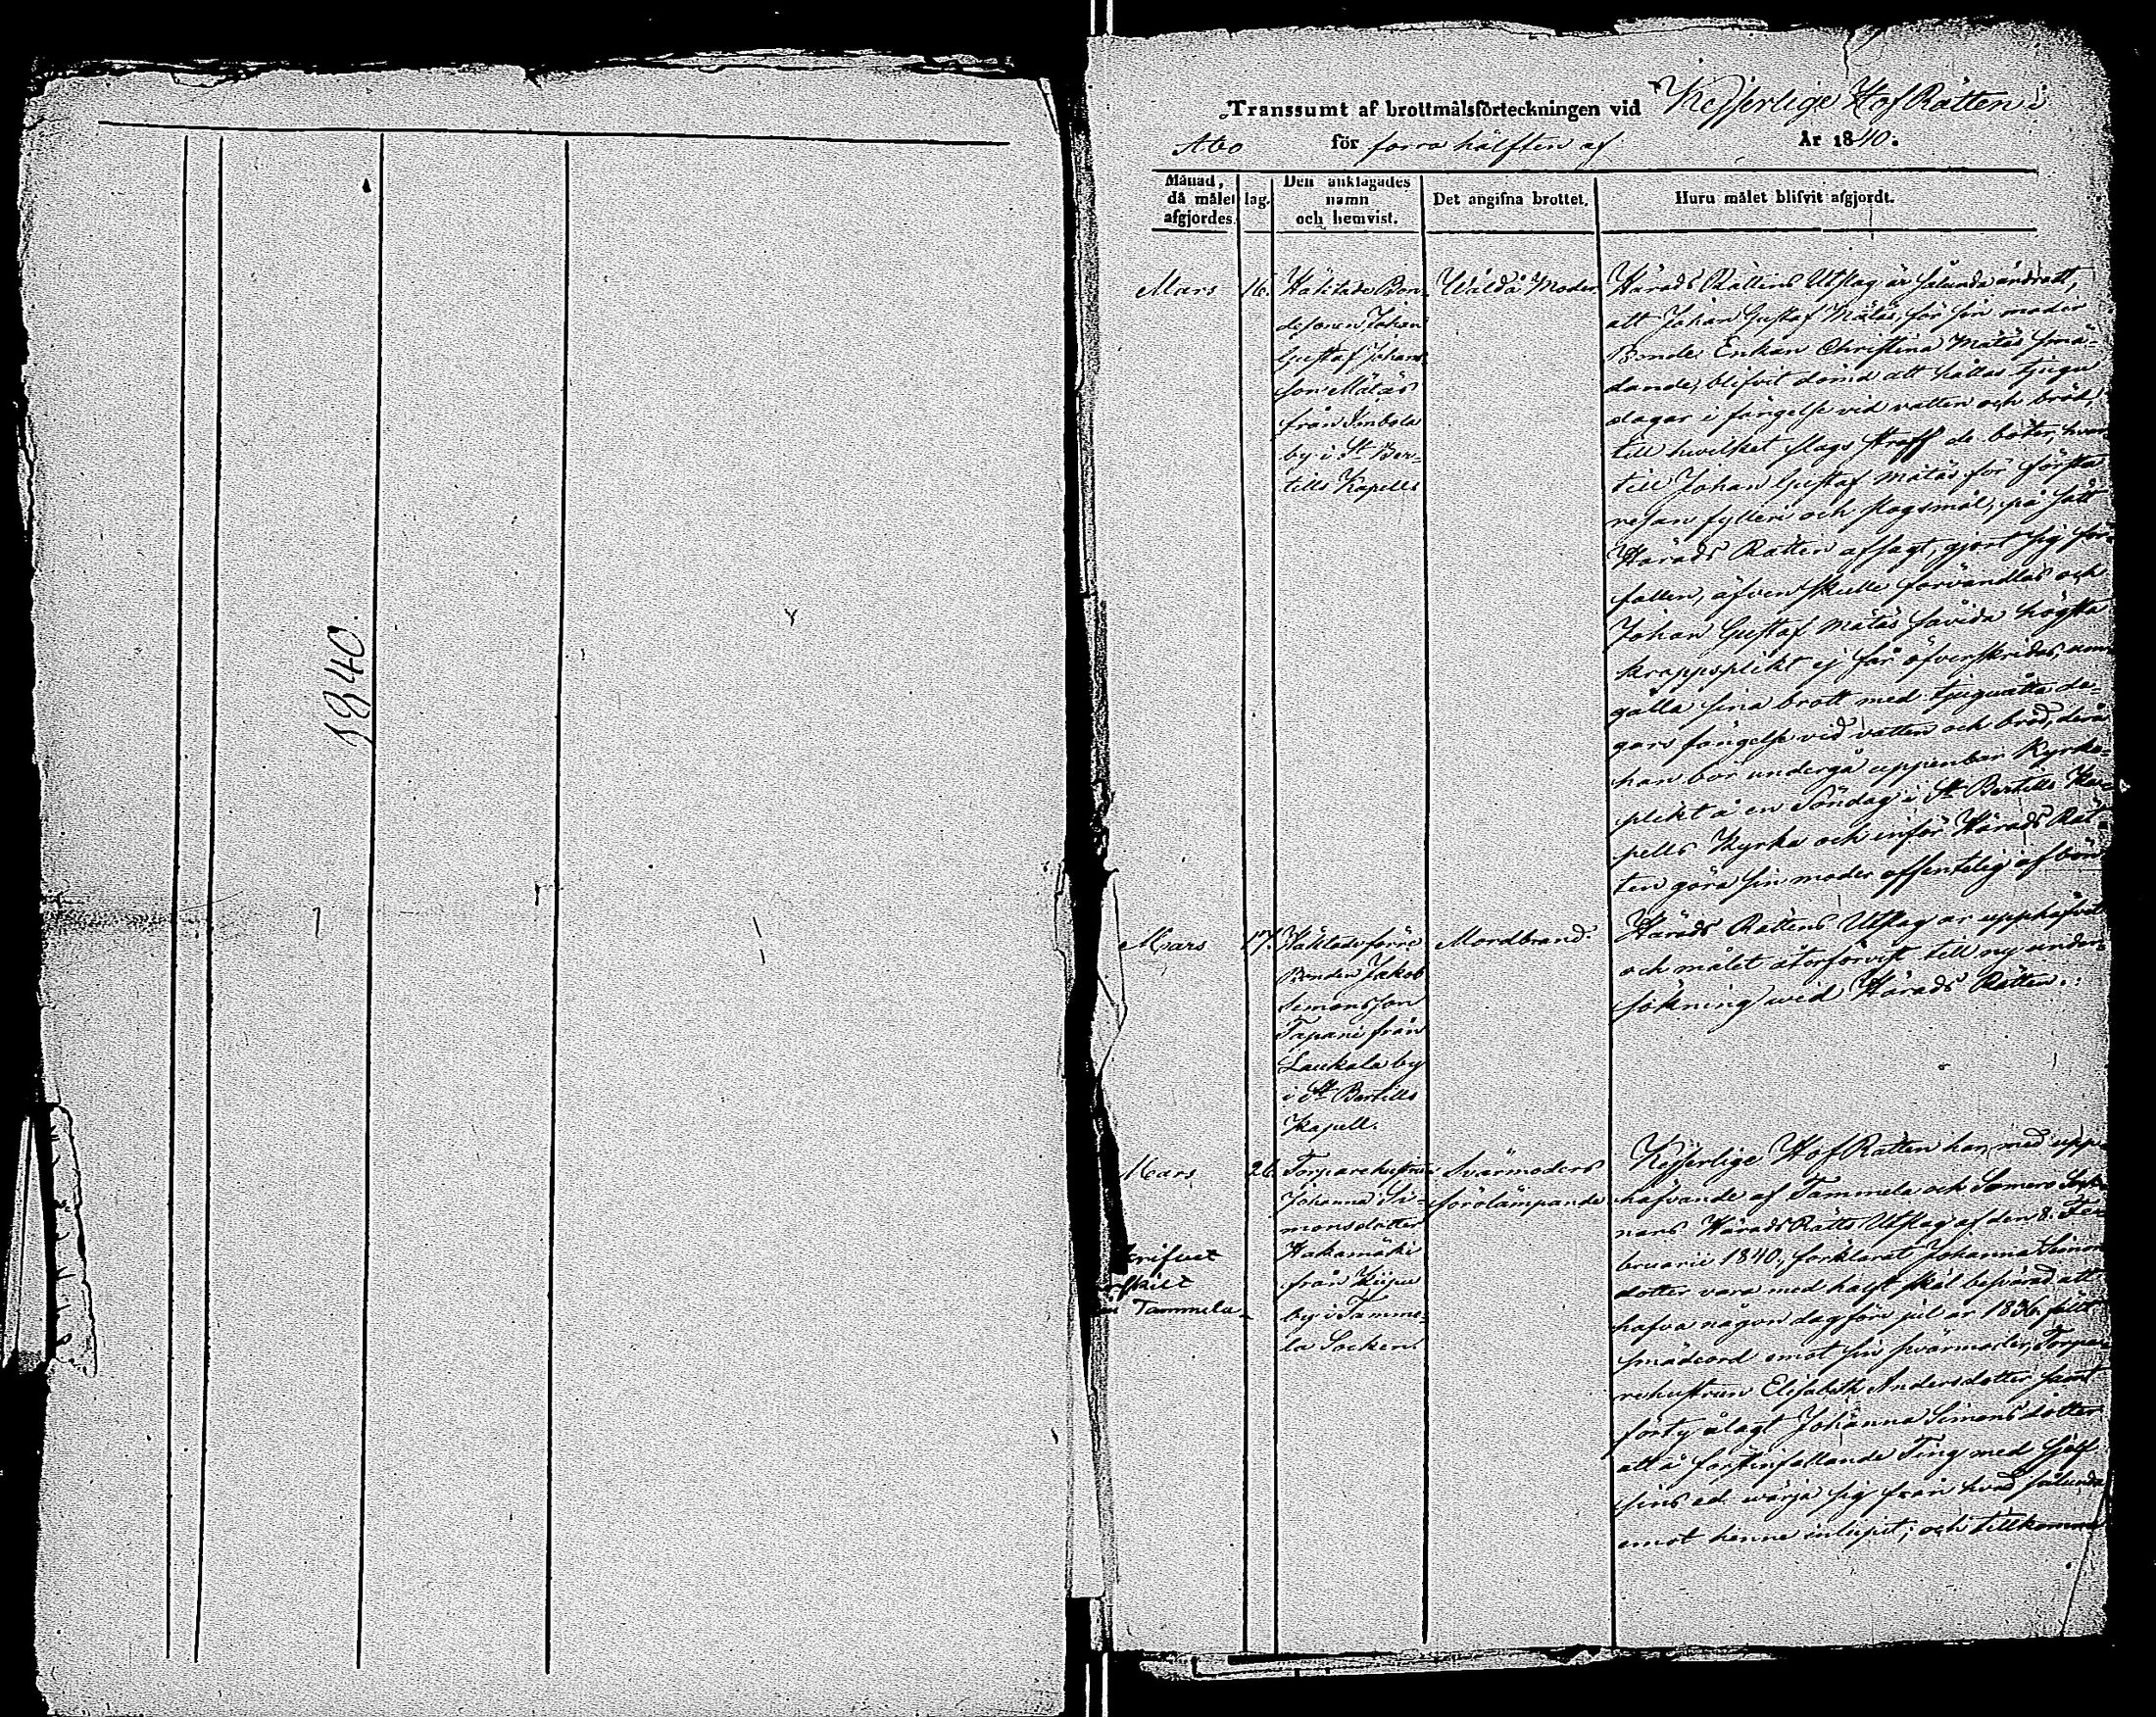 1840.
Transsumt af brottmålsförteckningen vid Kejserlige Hof Rätten i
Åbo för förra hälften af År 1840.
Månad, då målet afgjordes.
Dag.
Den anklagades namn och hemvist.
Det angifna brottet.
Huru målet blifvit afgjordt.
Mars
16.
Häktade Bon-
desonen Johan
Gustaf Johans
son Mätäs
från Inbola
by i St Ber-
tills Kapells
Wåld å Moder
Härads Rättens Utslag är sålunda ändradt,
att Johan Gustaf Mätäs, för sin moder
Bonde Enkan Christina Mätäs smä-
dande, blifvit dömd att hållas tjugu
dagar i fängelse vid vatten och bröd,
till hwilket slags straff de böter, hvar
till Johan Gustaf Mätäs för första
resan fylleri och slagsmål, på sätt
Härads Rätten afsagt, gjort sig för-
fallen, äfven skulle förvandlas och
Johan Gustaf Mätäs såvida högsta
kroppsplikt ej får öfverskridas, um-
gälla sina brott med tjuguåtta da-
gars fängelse vid vatten och bröd, derå
han bör undergå uppenbar Kyrko-
plikt å en Söndag i St Bertills Ka-
pells Kyrka och inför Härads Rät-
ten göra sin moder offentelig afbön
Mars
17.
Häktade förre
Bonden Jakob
Simonsson
Tapani från
Laukala by
i St Bertills
Kapell.
Mordbrand.
Härads Rättens Utslag är upphäfvet
och målet återförvist till ny under-
sökning wid Härads Rätten.
Mars
26
Torparehustru
Johanna Si-
monsdotter
Hakamäki
från Kiipu
by i Tamme-
la Socken.
Svärmoders
förolämpande
krifvet
skilt
Tammela
Kejserlige Hof Rätten har, med upp-
häfvande af Tammela och Somero Sock-
nars Härads Rätts Utslag af den 8. Fe-
bruarii 1840, förklarat Johanna Simons
dotter vara med halft skäl besvärad att
hafva någon dag före jul år 1836 fällt
smädeord emot sin svärmoder, Torpa-
rehustrun Elisabeth Andersdotter samt
förty ålagt Johanna Simonsdotter
att å förstinfallande Ting med sjelf
sins ed wärja sig från hvad sålunda
emot henne inlupit; och tillkomme